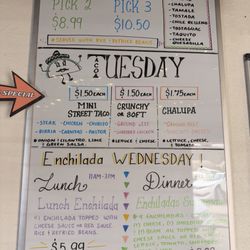 PICK 2
$8.99
PICK 3
$10.50
• CHALUPA
• TAMALE
• TOSTADA
• CHILE RELLENO
• TOSTAGUAC
• TAQUITO
• CHEESE QUESADILLA
SPECIAL
TACO
TUESDAY
$1.50 EACH
MINI
STREET TACO
• STEAK • CHICKEN • CHORIZO
• BIRRIA • CARNITAS • PASTOR
ONION & CILANTRO, LIME & GREEN SALSA
$1.50 EACH
CRUNCHY
OR SOFT
• GROUND BEEF
• SHREDDED CHICKEN
LETTUCE & CHEESE
$1.75 EACH
CHALUPA
LETTUCE, CHEESE, & TOMATO
Enchilada WEDNESDAY!
Lunch
11AM-3PM
Lunch Enchilada
1 ENCHILADA TOPPED WITH
CHEESE SAUCE OR RED SAUCE
RICE & REFRIED BEANS
$5.99
Dinner
Enchiladas